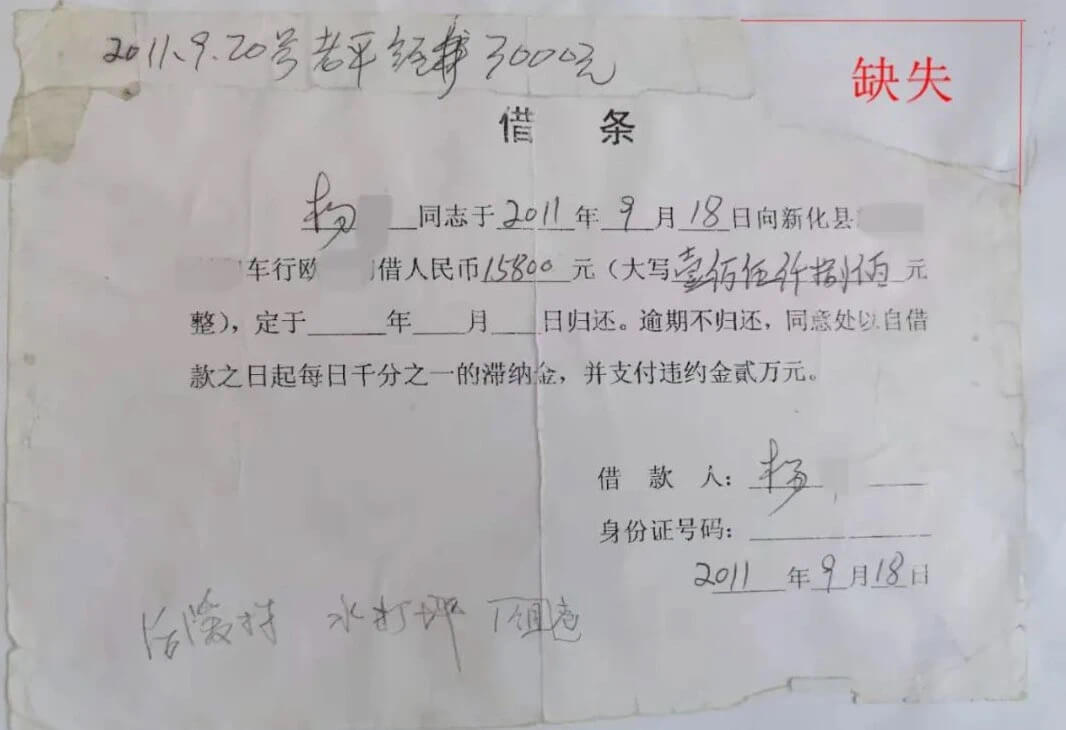 2011.9.20号老平经 3000元
缺失
借 条
杨 同志于2011年9月18日向新化县
车行欧 借人民币15800元（大写壹佰伍仟捌佰元
整），定于 年 月 日归还。逾期不归还，同意处以自借
款之日起每日千分之一的滞纳金，并支付违约金贰万元。
借 款 人：杨
身份证号码：
2011年9月18日
水打坪